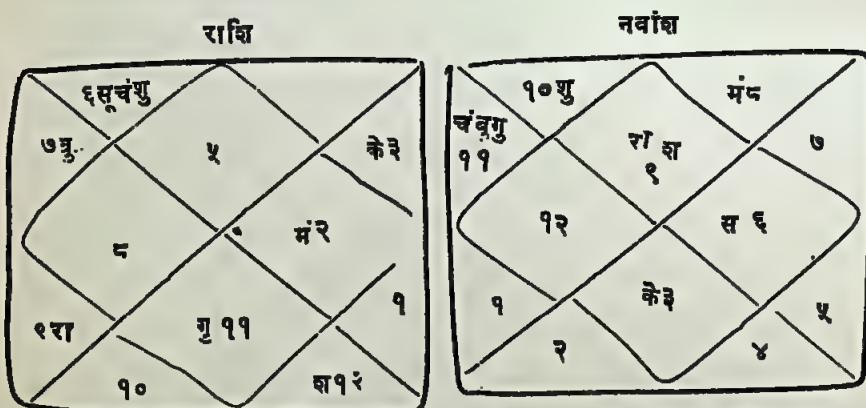 राशि
६सूचंशु
७बु
५
के३
८
मं२
९रा
गु११
१
१०
श१२
नवांश
१०शु
मं८
चंबुगु
११
रा श
९
७
१२
स ६
१
के३
५
२
४